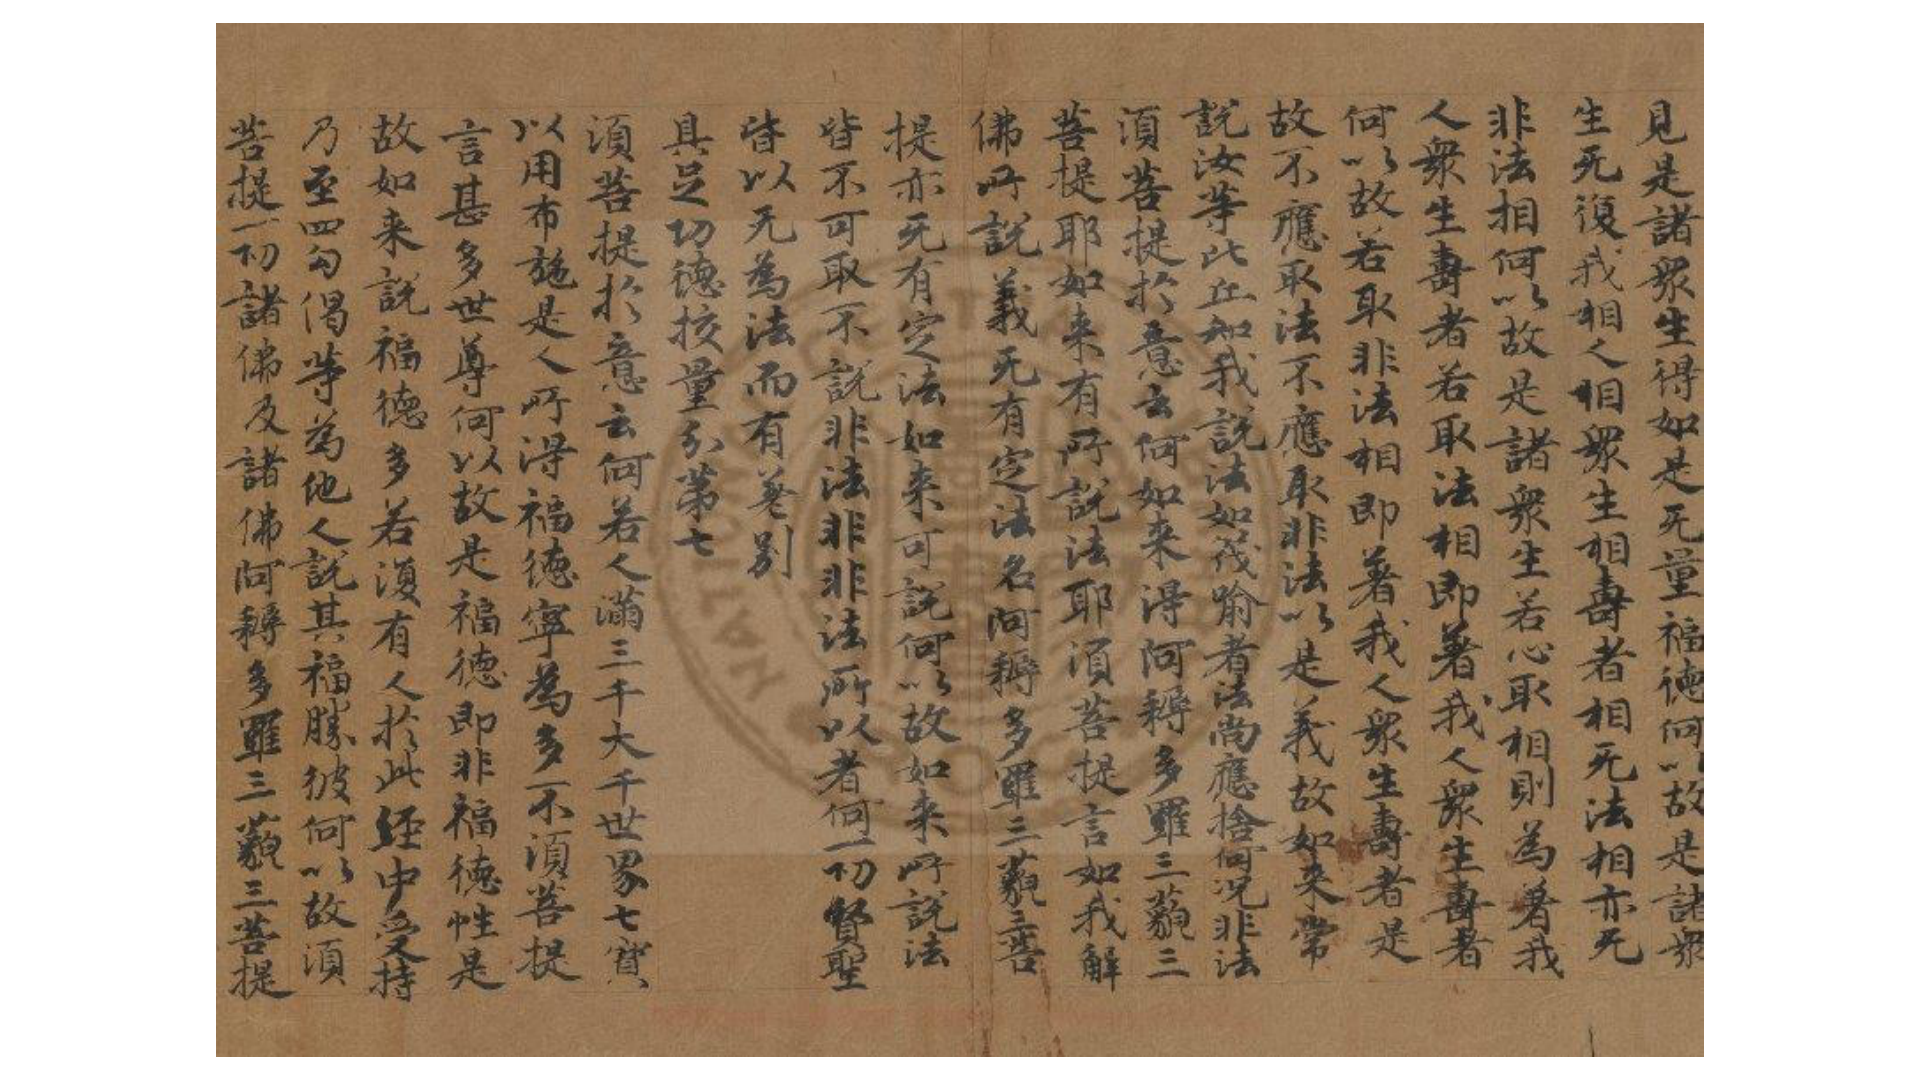 見是諸衆生得如是无量福德何以故是諸衆
生无復我相人相衆生相壽者相无法相亦无
非法相何以故是諸衆生若心取相則為著我
人衆生壽者若取法相即著我人衆生壽者
何以故若取非法相即著我人衆生壽者是
故不應取法不應取非法以是義故如来常
說汝等比丘知我說法如茷喻者法尚應捨何况非法
須菩提於意云何如来得阿耨多羅三藐三
菩提耶如来有所說法耶須菩提言如我解
佛所說義无有定法名阿耨多羅三藐三菩
提亦无有定法如来可說何以故如来所說法
皆不可取不說非法非非法所以者何一切賢聖
皆以无為法而有差別
具足功德挍量分第七
須菩提於意云何若人滿三千大千世界七寶
以用布施是人所得福德寧為多不須菩提
言甚多世尊何以故是福德即非福德性是
故如来說福德多若復有人於此經中受持
乃至四句偈等為他人說其福勝彼何以故須
菩提一切諸佛及諸佛阿耨多羅三藐三菩提